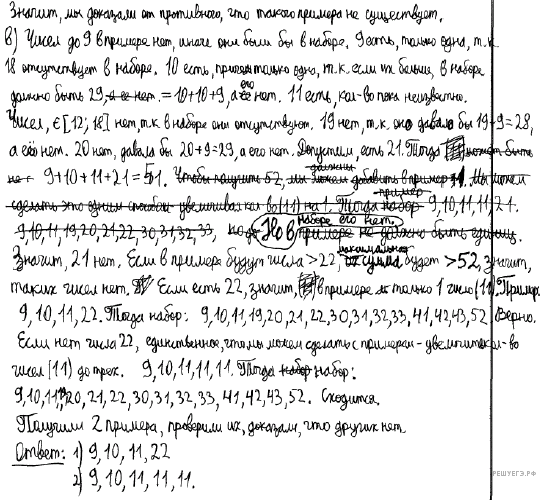 Значит, мы доказали от противного, что такого примера не существует.
в) Чисел до 9 в примере нет, иначе они были бы в наборе. 9 есть, только одна, т.к.
18 отсутствует в наборе. 10 есть, притом только одна, т.к. если их больше, в наборе
должно быть 29, а её нет. = 10+10+9, а его нет. 11 есть, кол-во пока неизвестно.
Чисел, ∈[12; 18] нет, т.к. в наборе они отсутствуют. 19 нет, т.к. оно давало бы 19+9=28,
а его нет. 20 нет, давала бы 20+9=29, а его нет. Допустим, есть 21. Тогда может быть
не 9+10+11+21=51. Чтобы получить 52, мы должны добавить в пример 1. Мы можем
сделать это одним способом увеличивая кол во (11) на 1. Тогда пример 9, 10, 11, 11 21.
9, 10, 11, 19, 20, 21, 22, 30, 31, 32, 33, Но в наборе его нет. примере не должно быть единиц.
Значит, 21 нет. Если в примере будут числа >22, максимальная сумма будет >52, значит,
таких чисел нет. Если есть 22, значит, в примере только 1 число (11). Пример
9, 10, 11, 22. Тогда набор: 9, 10, 11, 19, 20, 21, 22, 30, 31, 32, 33, 41, 42, 43, 52. Верно.
Если нет числа 22, единственное, что мы можем сделать с примером - увеличить кол-во
чисел (11) до трёх. 9, 10, 11, 11, 11. Тогда набор набор:
9, 10, 11, 20, 21, 22, 30, 31, 32, 33, 41, 42, 43, 52. Сходится.
Получили 2 примера, проверили их, доказали, что других нет
Ответ: 1) 9, 10, 11, 22
2) 9, 10, 11, 11, 11.
РЕШУЕГЭ.РФ